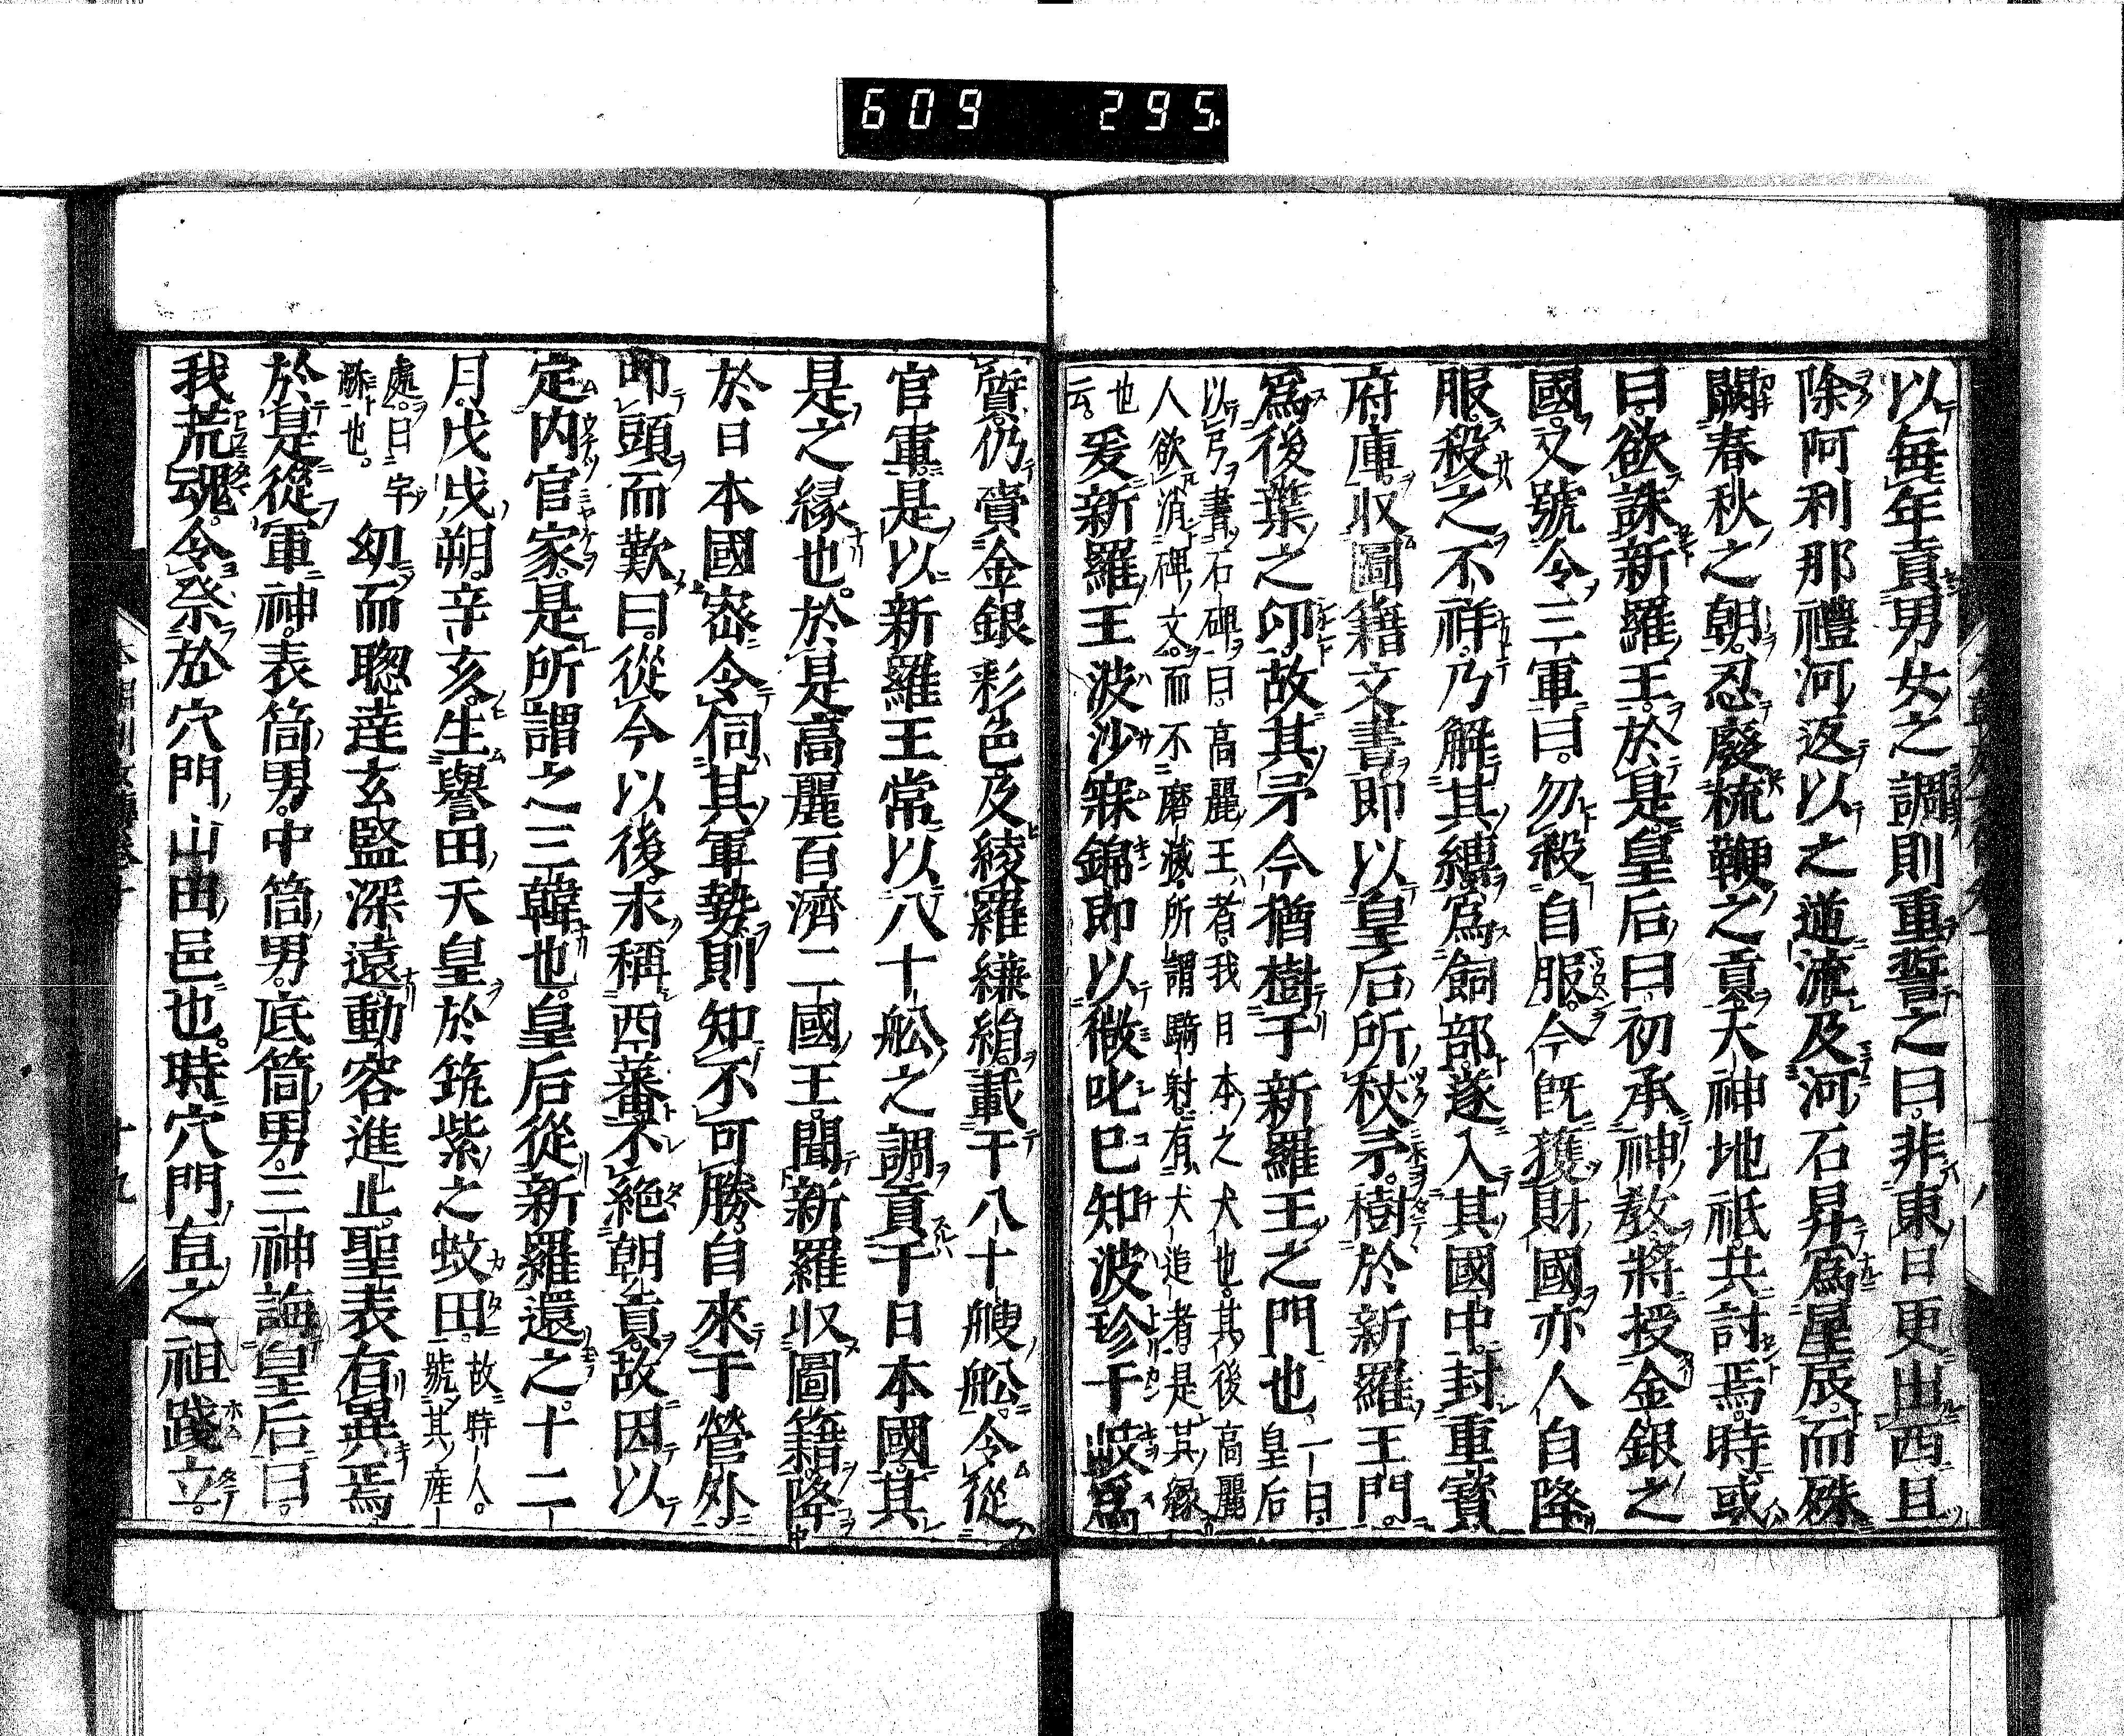 609 295
以毎年貢男女之調則重誓之曰。非東日更出西且
除阿利那禮河返以之逆流及河石昇爲星辰。而殊
闕春秋之朝。忍廢梳鞭之貢。天神地祇共討焉。時或
曰。欲誅新羅王。於是皇后曰初承神敎。將授金銀之
國。又號令三軍曰。勿殺自服。今既獲財國亦人自降
服。殺之不祥。乃解其縛爲飼部。遂入其國中。封重寶
府庫。収圖籍文書。即以皇后所杖矛。樹於新羅王門。
爲後葉之印。故其矛今猶樹于新羅王之門也。一曰。皇后
以弓書石碑曰。高麗王者。我日本之犬也。其後高麗
人欲消碑文。而不磨滅。所謂騎射。有犬追者。是其縁
也云。爰新羅王波沙寐錦即以微叱巳知波珍干岐爲
質。仍賷金銀彩色及綾羅縑絹。載干八十艘舩。令從
官軍。是以新羅王常以八十舩之調貢于日本國。其
是之縁也。於是高麗百濟二國王。聞新羅収圖籍。降
於日本國。密令伺其軍勢。則知不可勝。自來于營外
叩頭而歎曰。從今以後。永稱西蕃不絶朝貢。故因以
定内官家。是所謂之三韓也。皇后從新羅還之。十二
月。戊戌朔。辛亥。生譽田天皇於筑紫之蚊田。故時人。號其産
處。曰宇瀰也。 幼而聰達玄監深遠。動容進止。聖表有異焉
於是從軍神。表筒男。中筒男。底筒男。三神誨皇后曰。
我荒魂。令祭於穴門山田邑也。時穴門直之祖踐立。
十九